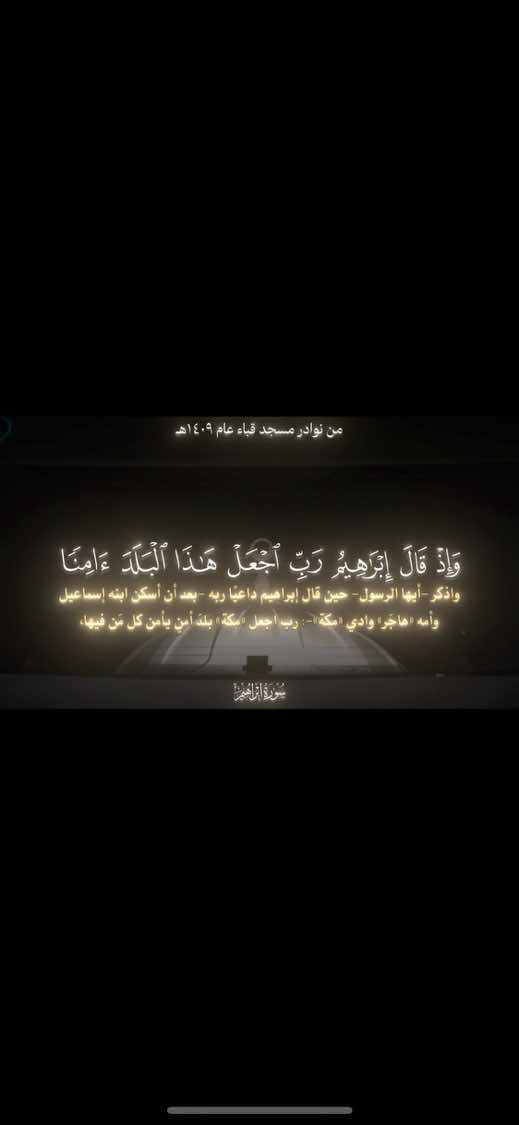 من نوادر مسجد قباء عام ١٤٠٩هـ
وَإِذْ قَالَ إِبْرَٰهِيمُ رَبِّ ٱجْعَلْ هَٰذَا ٱلْبَلَدَ ءَامِنًا
واذكر -أيها الرسول- حين قال إبراهيم داعيًا ربه -بعد أن أسكن ابنه إسماعيل
وأمه «هاجَر» وادي «مكة»-: رب اجعل «مكة» بلدَ أمنٍ يأمن كل مَن فيها،
سُورَةُ إِبْرَاهِيمَ